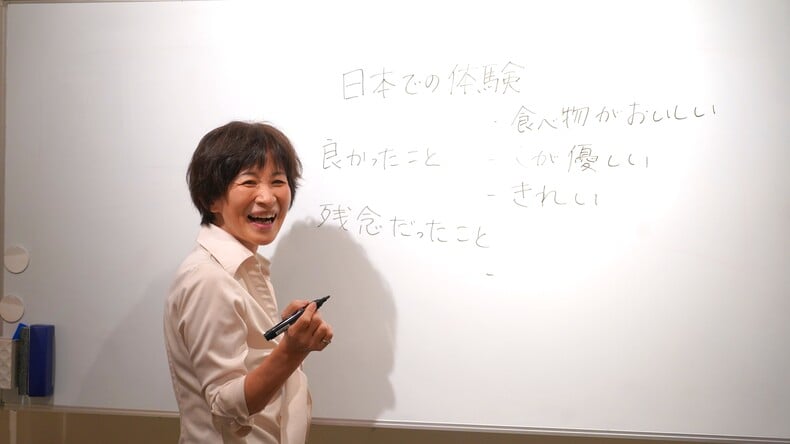 日本での体験
良かったこと
- 食べ物がおいしい
- が優しい
- きれい
残念だったこと
-